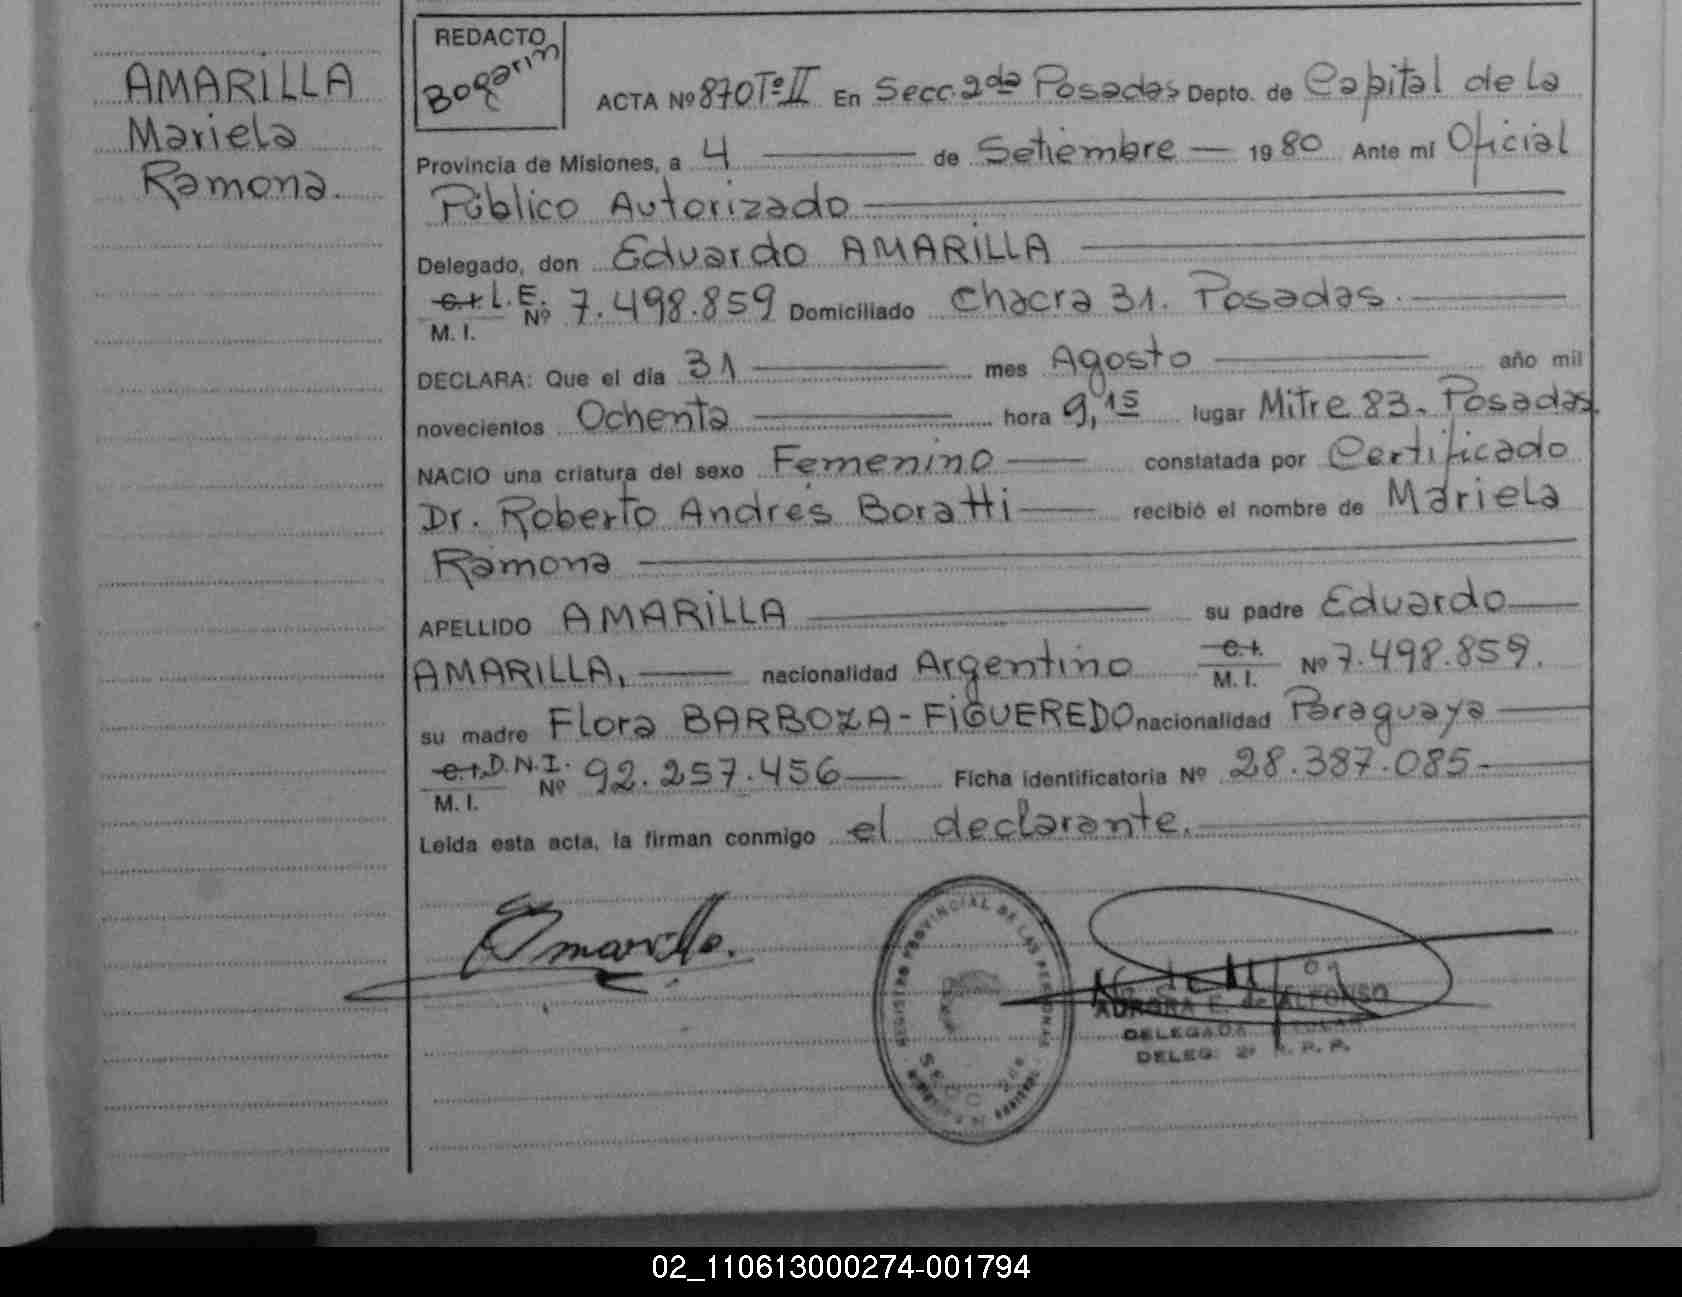 AMARILLA
Mariela
Ramona.
REDACTO
Bogarin
ACTA Nº 870 Tº II En Secc. 2da Posadas Depto. de Capital de la
Provincia de Misiones, a 4 de Setiembre 1980 Ante mí Oficial
Público Autorizado
Delegado, don Eduardo AMARILLA
C.I. L.E.
M. I. Nº 7.498.859 Domiciliado Chacra 31. Posadas.
DECLARA: Que el día 31 mes Agosto año mil
novecientos Ochenta hora 9,15 lugar Mitre 83. Posadas.
NACIO una criatura del sexo Femenino constatada por Certificado
Dr. Roberto Andrés Boratti recibió el nombre de Mariela
Ramona
APELLIDO AMARILLA su padre Eduardo
AMARILLA, nacionalidad Argentino C.I. M. I. Nº 7.498.859.
su madre Flora BARBOZA-FIGUEREDO nacionalidad Paraguaya
C.I. D.N.I.
M. I. Nº 92.257.456 Ficha identificatoria Nº 28.387.085
Leída esta acta, la firman conmigo el declarante.
Amarilla.
REGISTRO PROVINCIAL DE LAS PERSONAS
SECC 2da
AURORA E. de ALFONSO
DELEGADA TITULAR
DELEG. 2ª R. P. P.
02_110613000274-001794